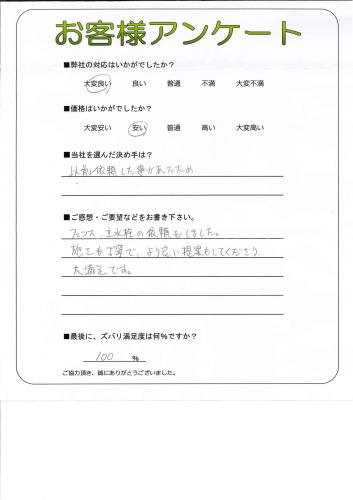 お客様アンケート
■弊社の対応はいかがでしたか？
大変良い 良い 普通 不満 大変不満
■価格はいかがでしたか？
大変安い 安い 普通 高い 大変高い
■当社を選んだ決め手は？
以前依頼した事があったため
■ご感想・ご要望などをお書き下さい。
フェンス、立水栓の依頼をしました。
施工も丁寧で、より良い提案もしてくださり、
大満足です。
■最後に、ズバリ満足度は何％ですか？
100 %
ご協力頂き、誠にありがとうございました。